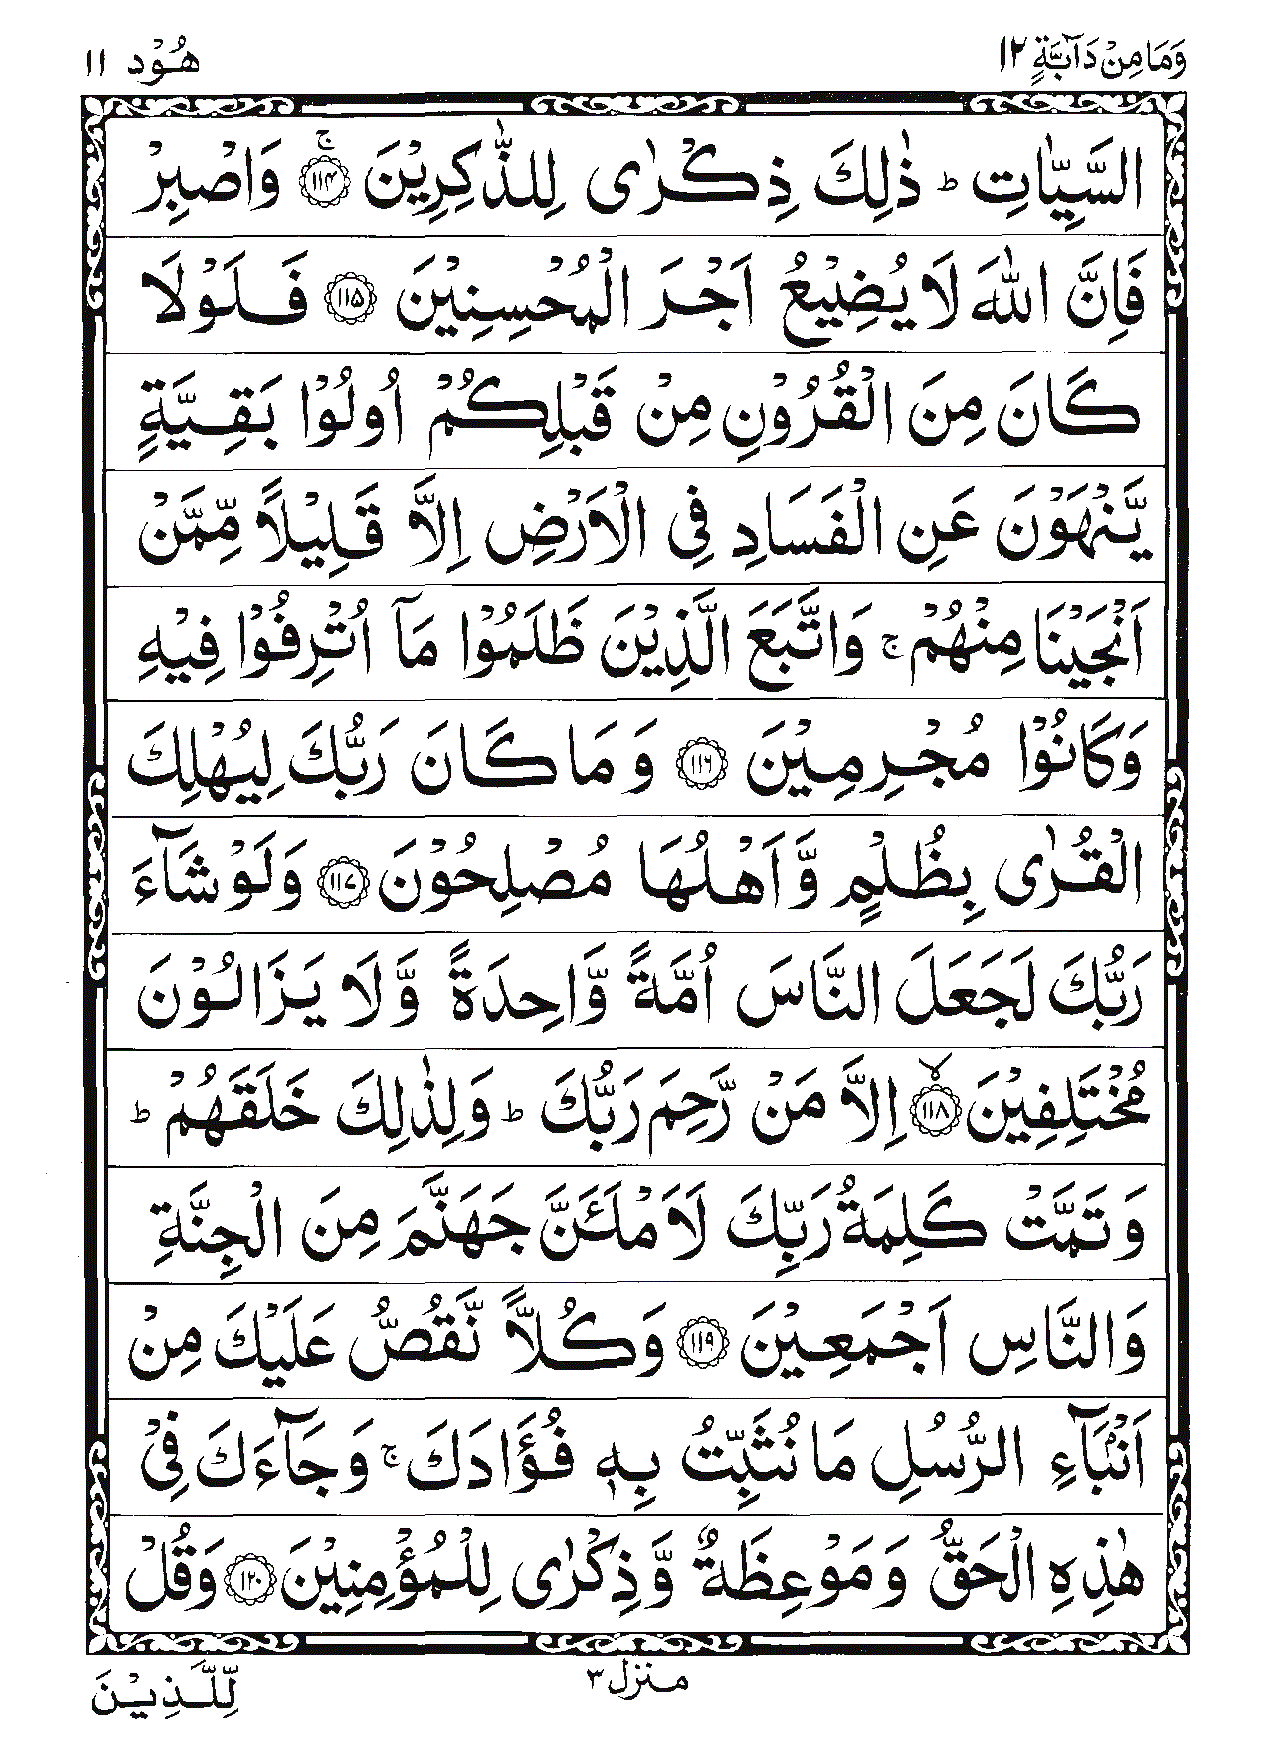 وَمَا مِنْ دَآبَّةٍ ١٢
هُوْد ١١
السَّيِّاٰتِ ؕ ذٰلِكَ ذِكْرٰى لِلذّٰكِرِيْنَ ۚ‏ ﴿۱۱۴﴾ وَاصْبِرْ
فَاِنَّ اللّٰهَ لَا يُضِيْعُ اَجْرَ الْمُحْسِنِيْنَ ﴿۱۱۵﴾ فَلَوْلَا
كَانَ مِنَ الْقُرُوْنِ مِنْ قَبْلِكُمْ اُولُوْا بَقِيَّةٍ
يَّنْهَوْنَ عَنِ الْفَسَادِ فِى الْاَرْضِ اِلَّا قَلِيْلًا مِّمَّنْ
اَنْجَيْنَا مِنْهُمْ ۚ وَاتَّبَعَ الَّذِيْنَ ظَلَمُوْا مَاۤ اُتْرِفُوْا فِيْهِ
وَكَانُوْا مُجْرِمِيْنَ ﴿۱۱۶﴾ وَمَا كَانَ رَبُّكَ لِيُهْلِكَ
الْقُرٰى بِظُلْمٍ وَّاَهْلُهَا مُصْلِحُوْنَ ﴿۱۱۷﴾ وَلَوْ شَآءَ
رَبُّكَ لَجَعَلَ النَّاسَ اُمَّةً وَّاحِدَةً وَّلَا يَزَالُوْنَ
مُخْتَلِفِيْنَ ۙ ﴿۱۱۸﴾ اِلَّا مَنْ رَّحِمَ رَبُّكَ ؕ وَلِذٰلِكَ خَلَقَهُمْ ؕ
وَتَمَّتْ كَلِمَةُ رَبِّكَ لَاَمْلَـَٔنَّ جَهَنَّمَ مِنَ الْجِنَّةِ
وَالنَّاسِ اَجْمَعِيْنَ ﴿۱۱۹﴾ وَكُلًّا نَّقُصُّ عَلَيْكَ مِنْ
اَنْۢبَآءِ الرُّسُلِ مَا نُثَبِّتُ بِهٖ فُؤَادَكَ ۚ وَجَآءَكَ فِىْ
هٰذِهِ الْحَقُّ وَمَوْعِظَةٌ وَّذِكْرٰى لِلْمُؤْمِنِيْنَ ﴿۱۲۰﴾ وَقُلْ
منزل ٣
لِّلَّذِيْنَ